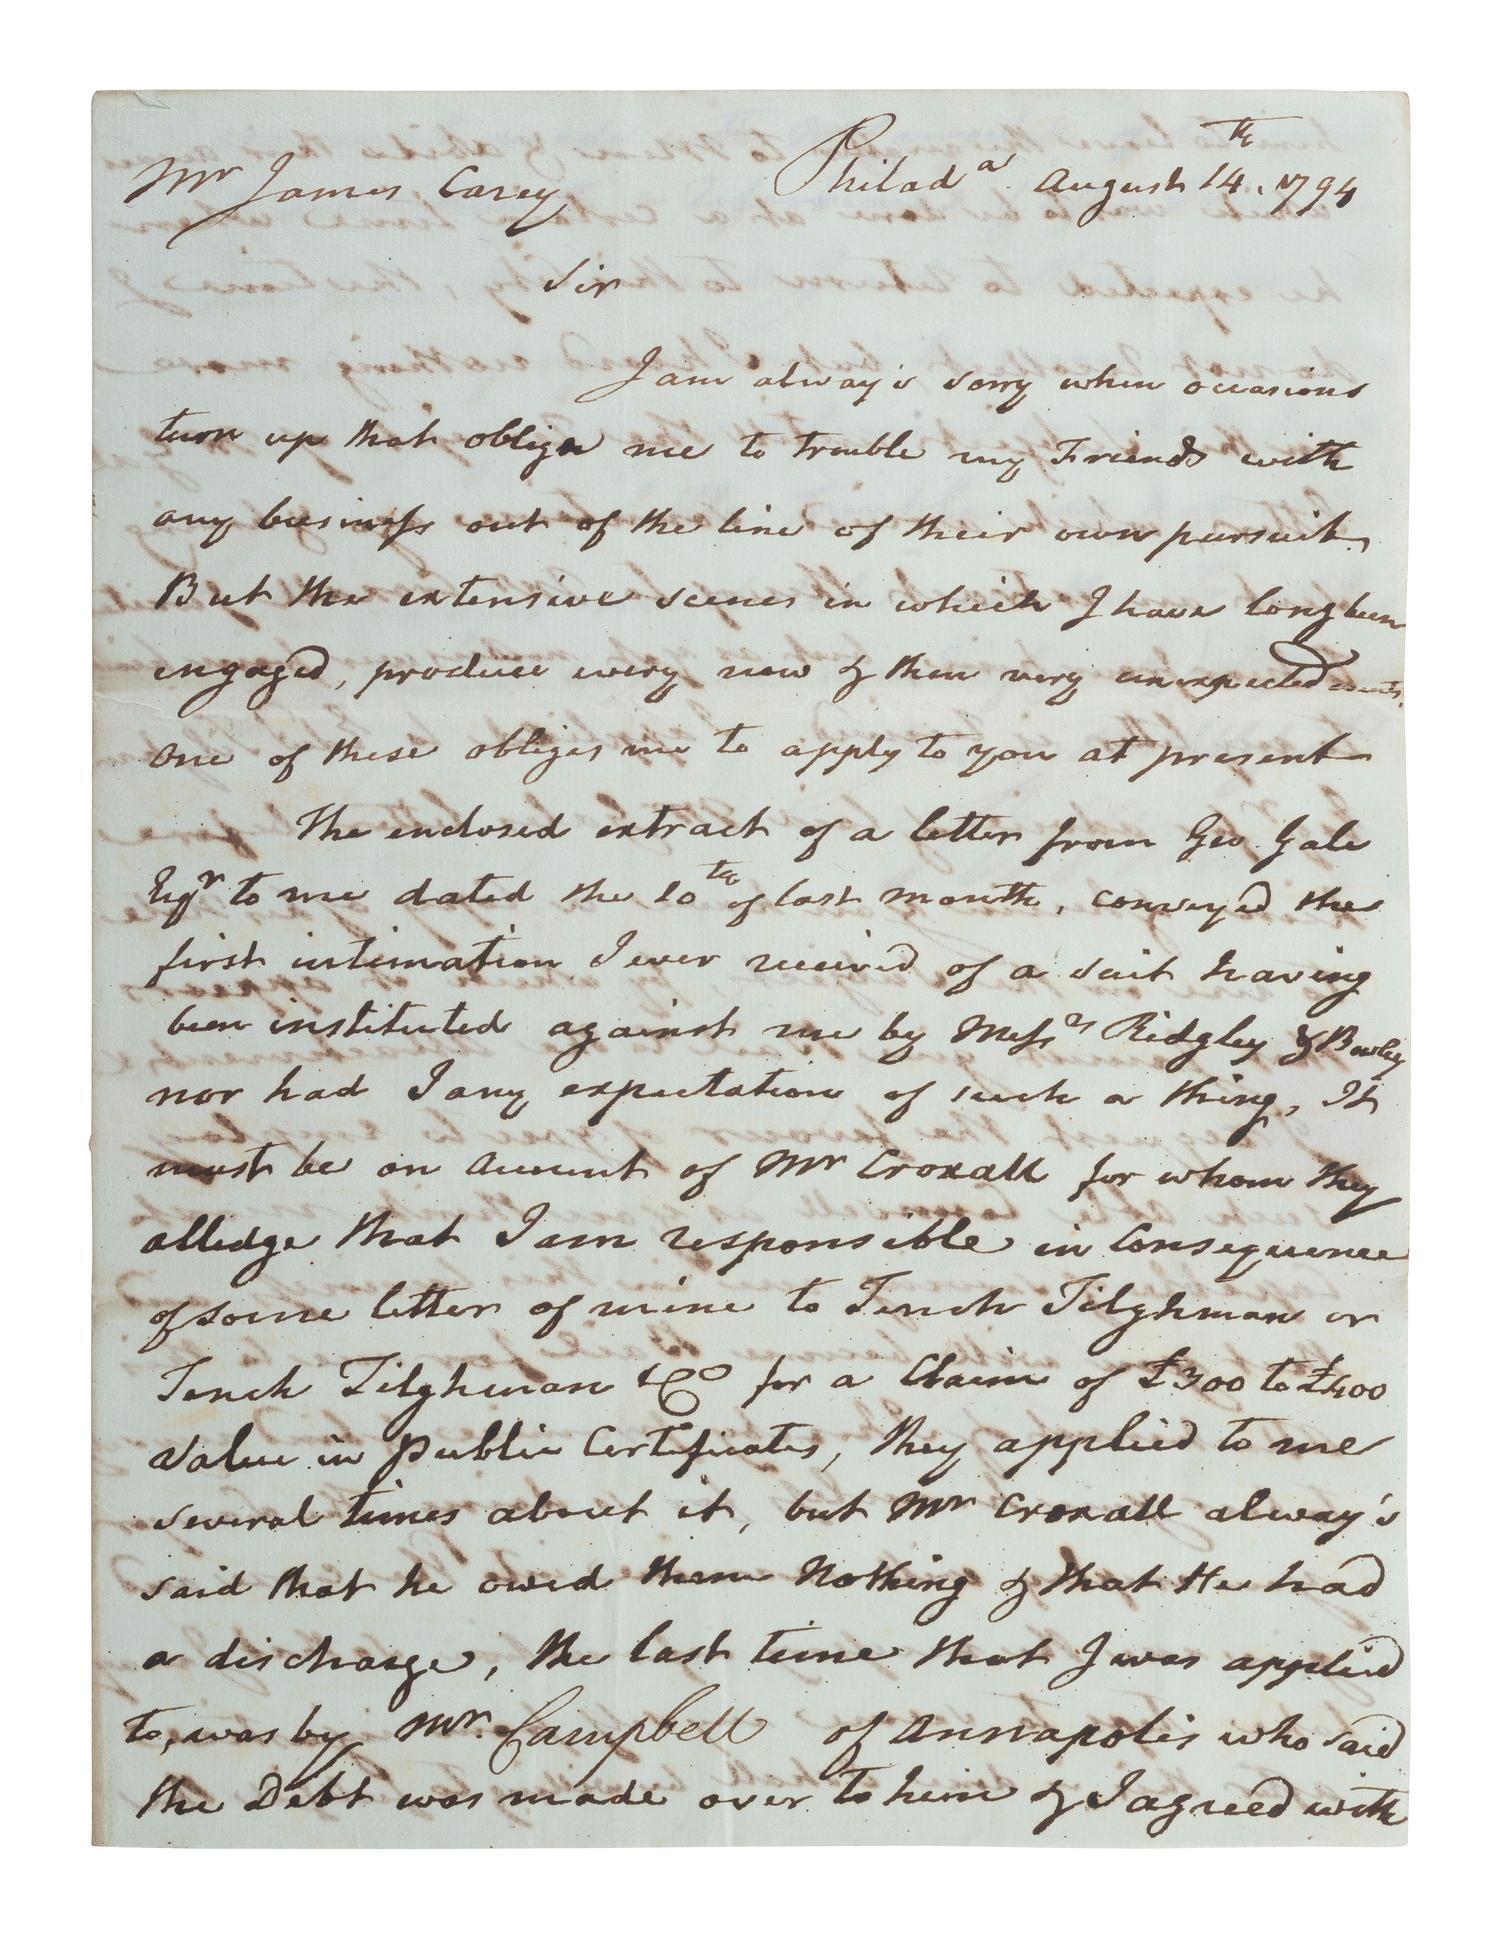 Mr James Carey Philad.a August 14th. 1794
Sir
I am alway's sorry when occasions
turn up that oblige me to trouble my Friends with
any business out of the line of their own pursuit,
But the extensive scenes in which I have long been
engaged, produce every now & then very unexpected events.
One of these obliges me to apply to you at present
The enclosed extract of a letter from Geo Gale
Esqr to me dated the 10th of last month, conveyed the
first intimation I ever received of a suit having
been instituted against me by Messrs Ridgley & Bowley
nor had I any expectation of such a thing, It
must be on account of Mr Croxall for whom they
alledge that I am responsible in Consequence
of some letter of mine to Tench Tilghman or
Tench Tilghman & Co for a Claim of £300 to £400
Value in Public Certificates, they applied to me
several times about it, but Mr Croxall alway's
said that he owed them Nothing & that He had
a discharge, the last time that I was applied
to, was by Mr. Campbell of Annapolis who said
the Debt was made over to him & I agreed with